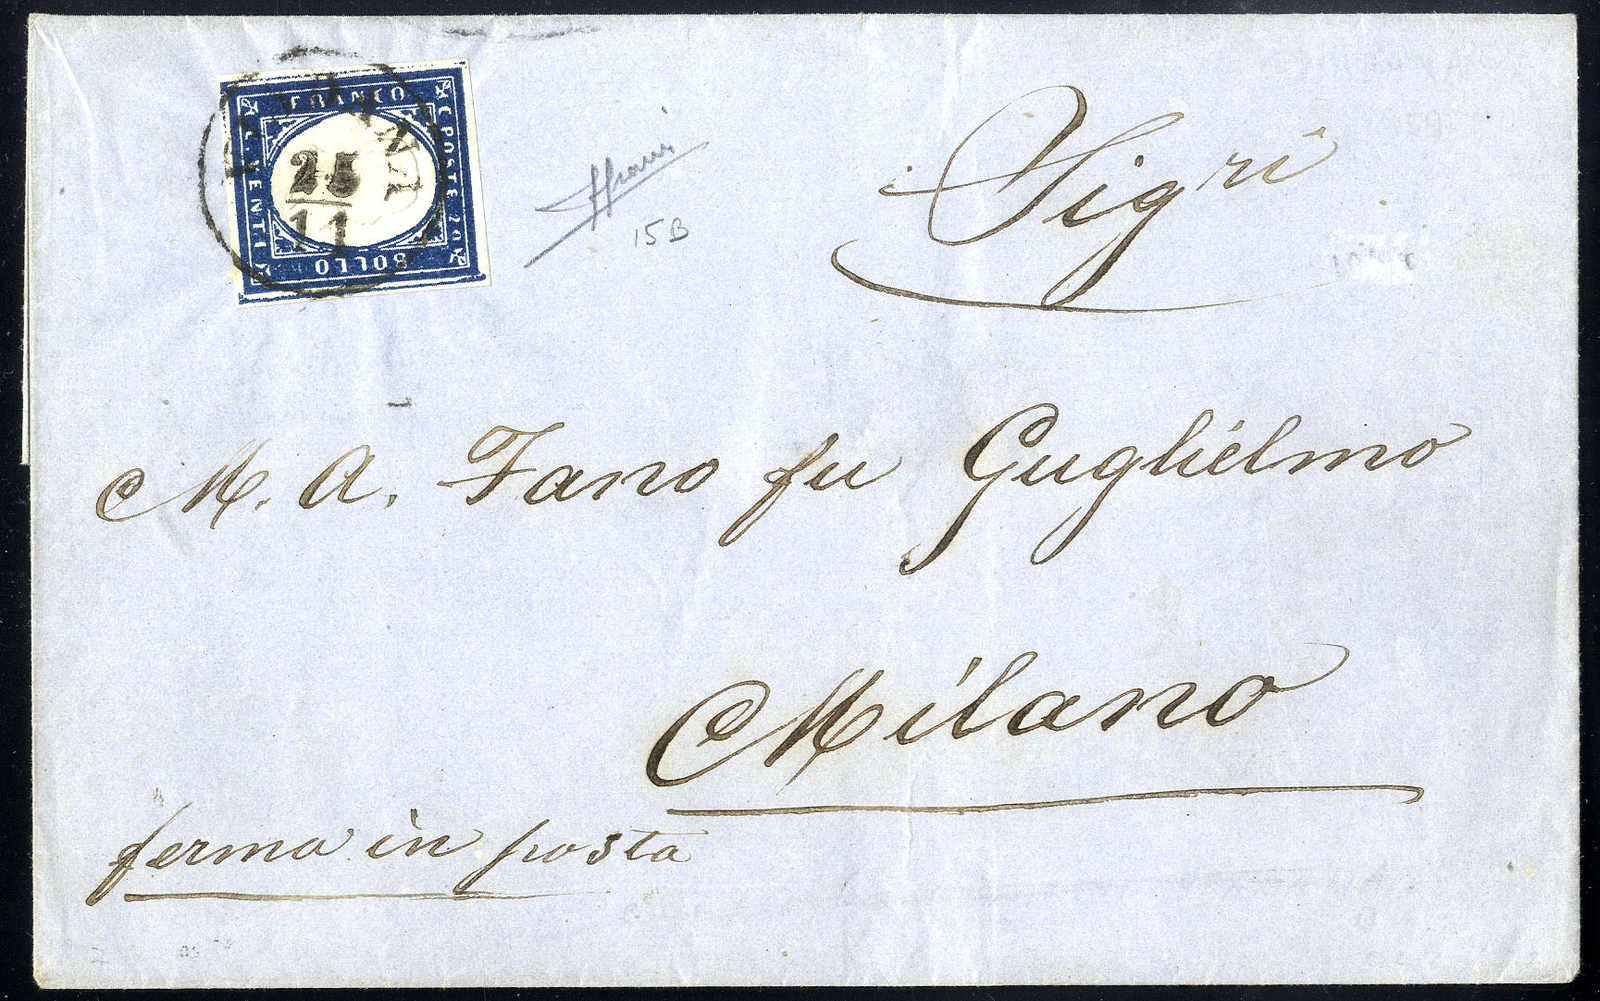 FRANCO
C. POSTE 20
BOLLO
C. VENTI
25
11
15B
Sig ri
M. A. Fano fu Guglielmo
Milano
ferma in posta